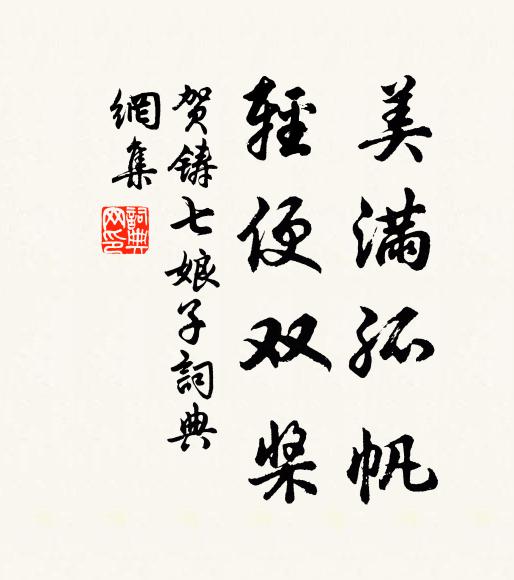 美满孤帆
輕便双桨
贺铸七娘子詞典
網集
詞典网印